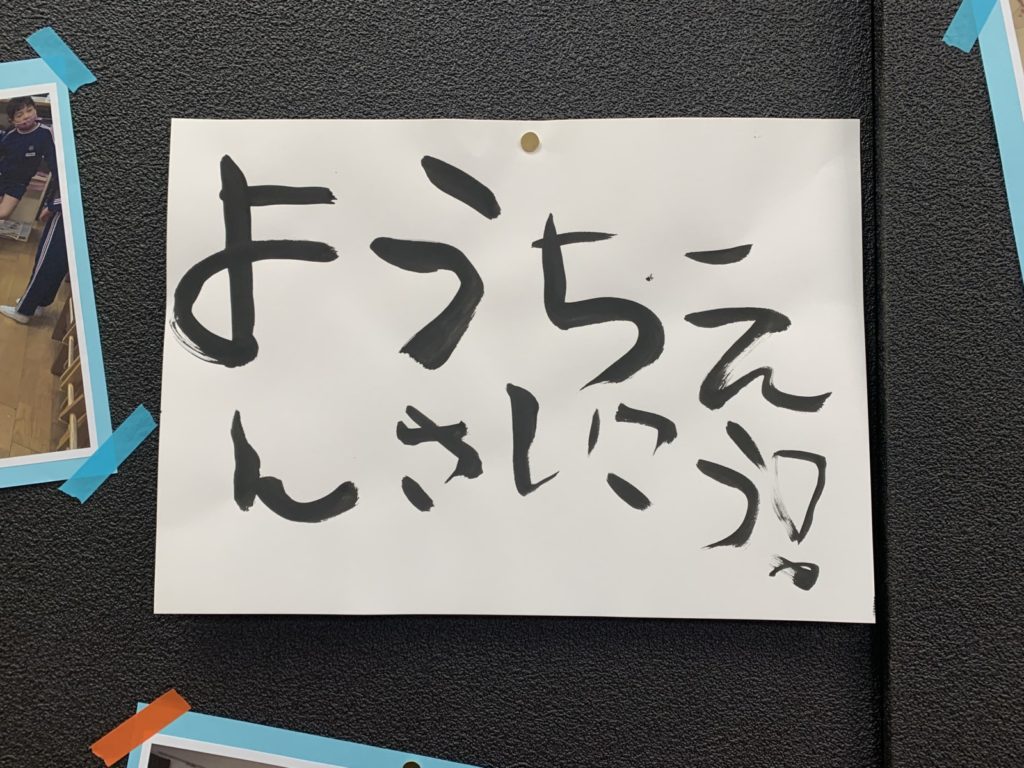 ようちえ
んさいこう!